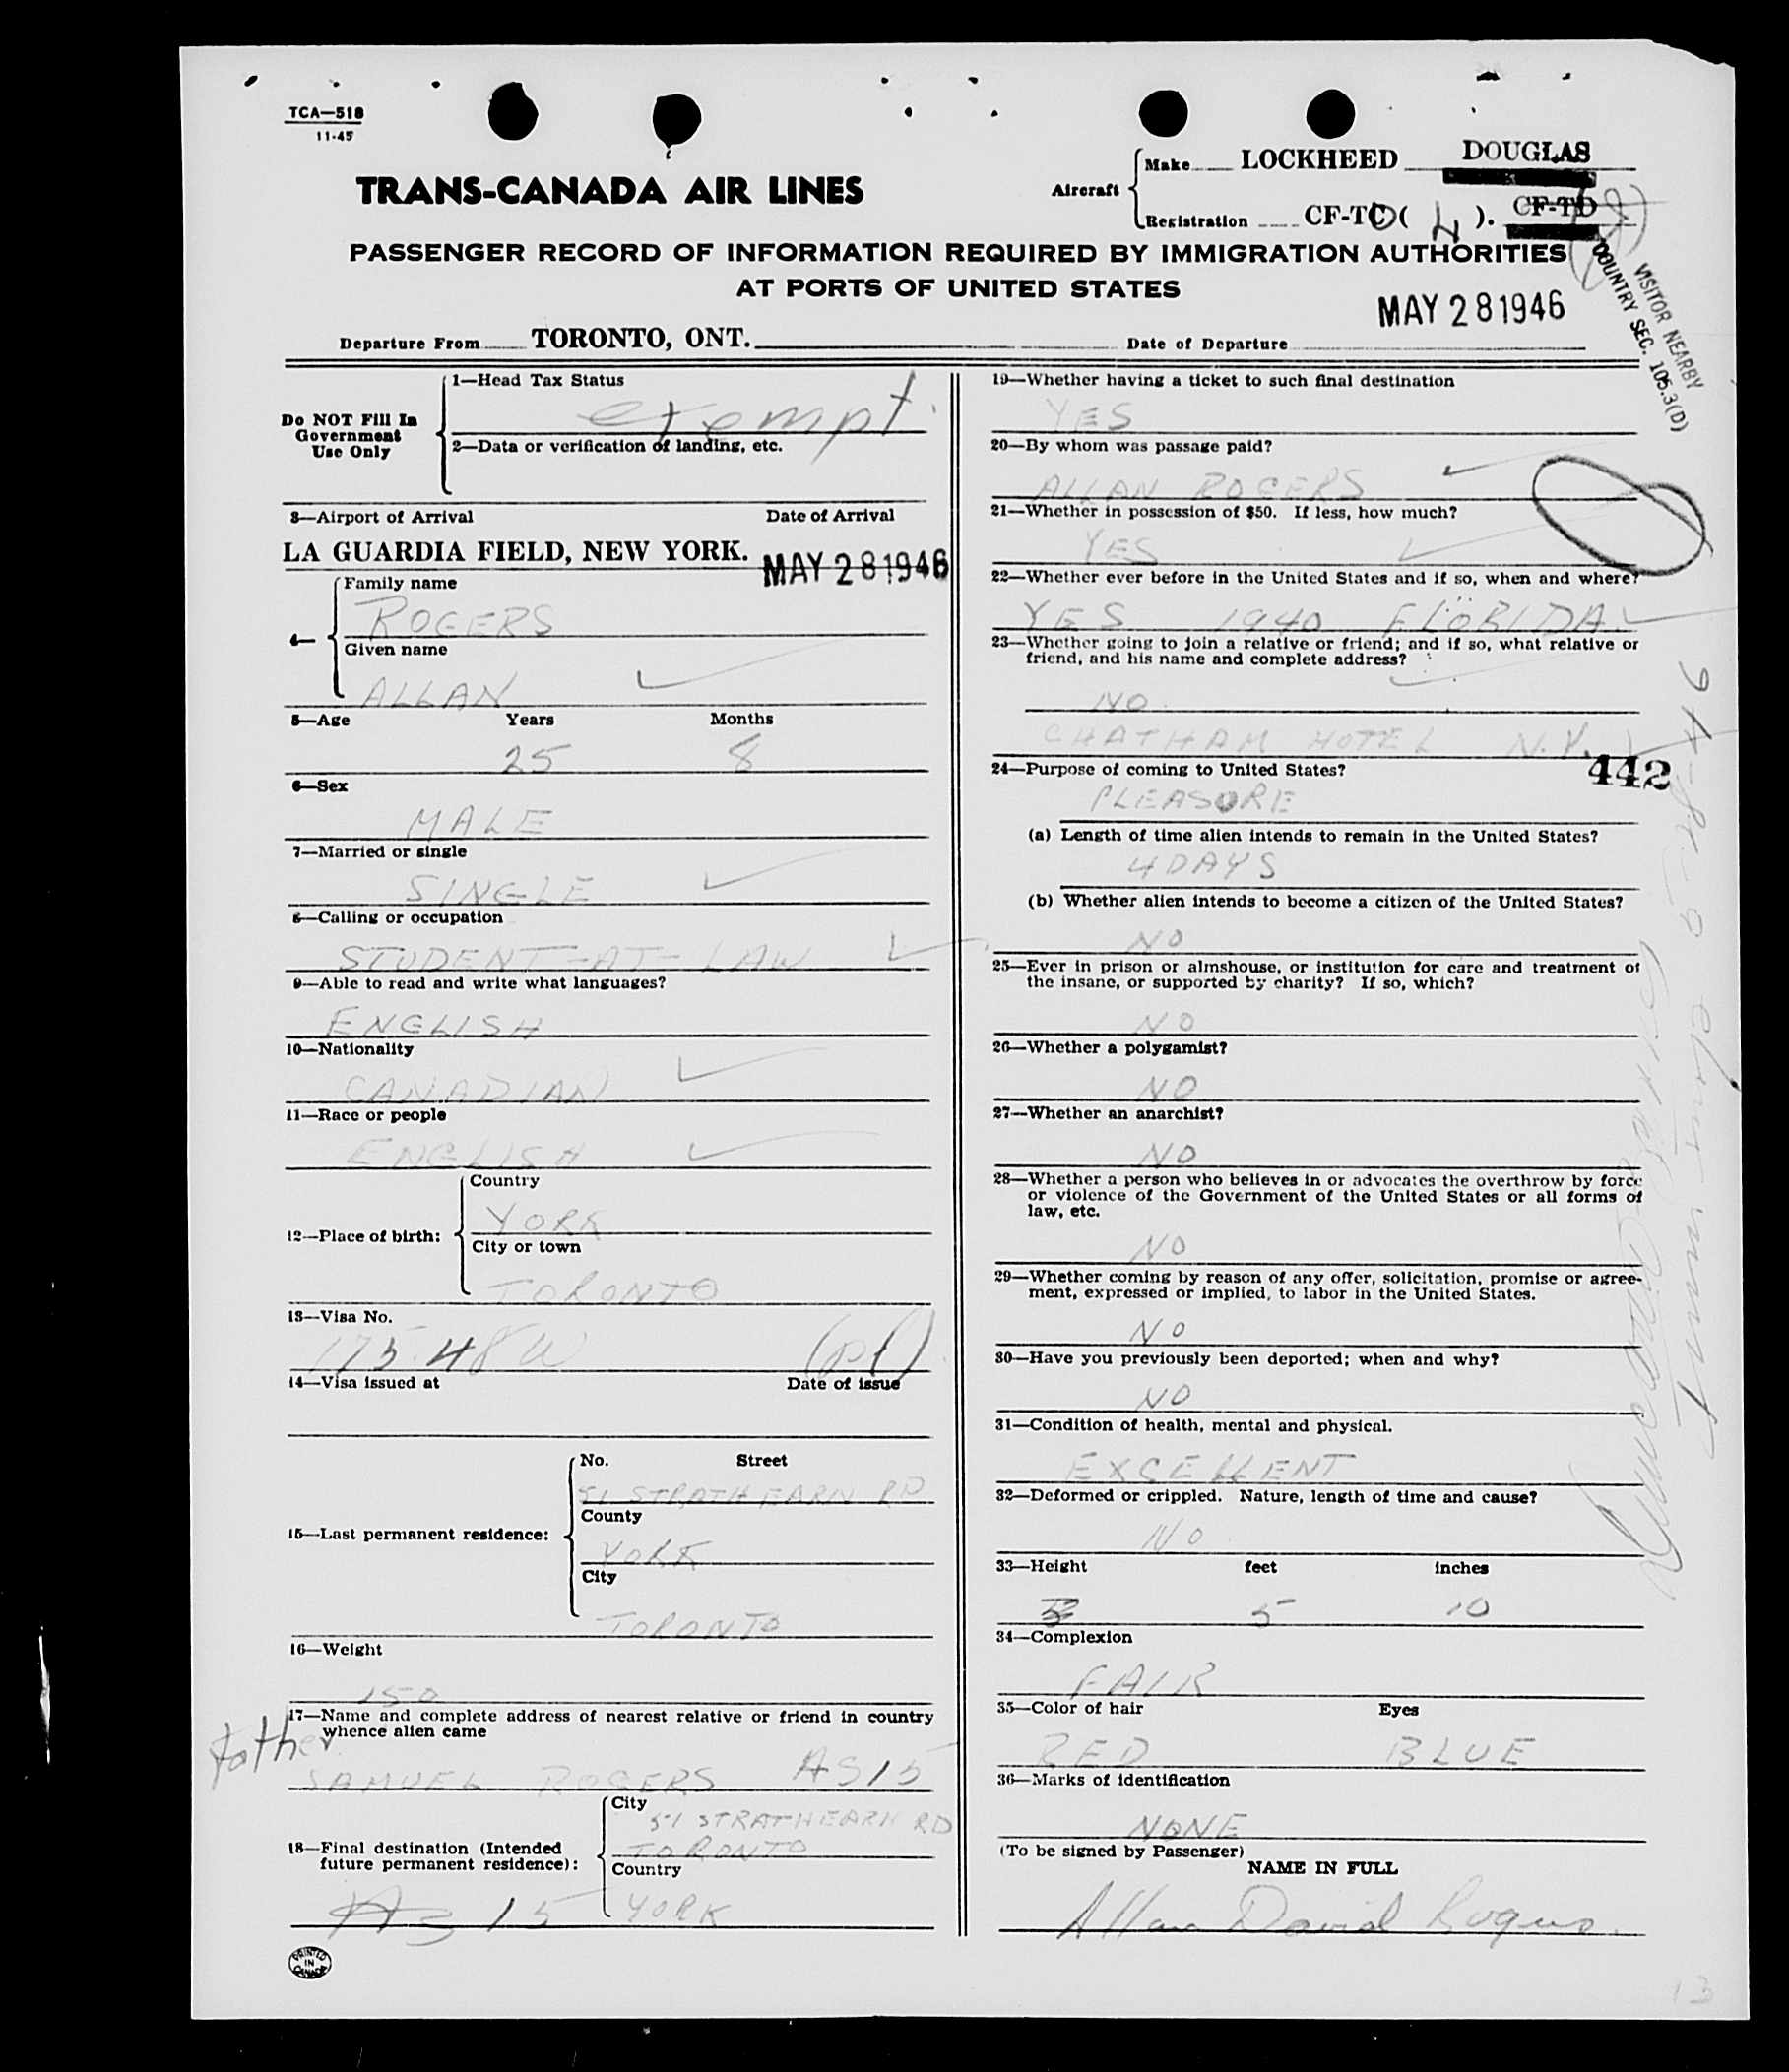 TCA—518
11-45
TRANS-CANADA AIR LINES
Aircraft
Make LOCKHEED DOUGLAS
Registration CF-TC ( 4 ). CF-TD
PASSENGER RECORD OF INFORMATION REQUIRED BY IMMIGRATION AUTHORITIES
AT PORTS OF UNITED STATES
VISITOR NEARBY
COUNTRY SEC. 105.3(D)
MAY 28 1946
Departure From TORONTO, ONT. Date of Departure
Do NOT Fill In
Government
Use Only
1—Head Tax Status
exempt.
2—Data or verification of landing, etc.
3—Airport of Arrival Date of Arrival
LA GUARDIA FIELD, NEW YORK. MAY 28 1946
4—
Family name
ROGERS
Given name
ALLAN
5—Age Years Months
25 8
6—Sex
MALE
7—Married or single
SINGLE
8—Calling or occupation
STUDENT-AT-LAW
9—Able to read and write what languages?
ENGLISH
10—Nationality
CANADIAN
11—Race or people
ENGLISH
12—Place of birth:
Country
YORK
City or town
TORONTO
13—Visa No.
175.48 W (pl)
14—Visa issued at Date of issue
15—Last permanent residence:
No. Street
51 STRATHEARN RD
County
YORK
City
TORONTO
16—Weight
150
17—Name and complete address of nearest relative or friend in country
whence alien came
father
SAMUEL ROGERS AS15
18—Final destination (Intended
future permanent residence):
City
51 STRATHEARN RD
TORONTO
Country
YORK
AS 15
PRINTED
IN
CANADA
19—Whether having a ticket to such final destination
YES
20—By whom was passage paid?
ALLAN ROGERS
21—Whether in possession of $50. If less, how much?
YES
22—Whether ever before in the United States and if so, when and where?
YES 1940 FLORIDA
23—Whether going to join a relative or friend; and if so, what relative or
friend, and his name and complete address?
NO
CHATHAM HOTEL N.Y.
442
24—Purpose of coming to United States?
PLEASURE
(a) Length of time alien intends to remain in the United States?
4 DAYS
(b) Whether alien intends to become a citizen of the United States?
NO
25—Ever in prison or almshouse, or institution for care and treatment of
the insane, or supported by charity? If so, which?
NO
26—Whether a polygamist?
NO
27—Whether an anarchist?
NO
28—Whether a person who believes in or advocates the overthrow by force
or violence of the Government of the United States or all forms of
law, etc.
NO
29—Whether coming by reason of any offer, solicitation, promise or agree-
ment, expressed or implied, to labor in the United States.
NO
30—Have you previously been deported; when and why?
NO
31—Condition of health, mental and physical.
EXCELLENT
32—Deformed or crippled. Nature, length of time and cause?
NO
33—Height feet inches
5 10
34—Complexion
FAIR
35—Color of hair Eyes
RED BLUE
36—Marks of identification
NONE
(To be signed by Passenger)
NAME IN FULL
Allan David Rogers.
13